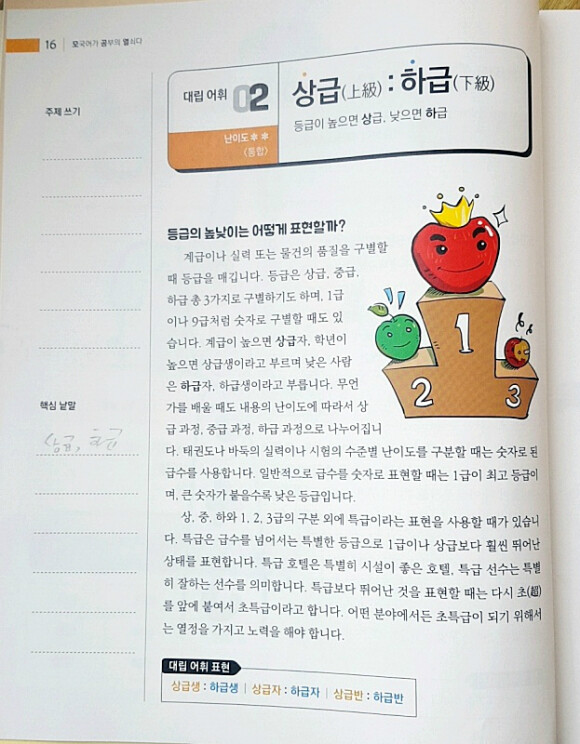 16 모국어가 공부의 열쇠다
주제 쓰기
핵심 낱말
상급, 하급
대립 어휘 02
난이도 ✽✽
〈통합〉
상급(上級) : 하급(下級)
등급이 높으면 상급, 낮으면 하급
등급의 높낮이는 어떻게 표현할까?
계급이나 실력 또는 물건의 품질을 구별할
때 등급을 매깁니다. 등급은 상급, 중급,
하급 총 3가지로 구별하기도 하며, 1급
이나 9급처럼 숫자로 구별할 때도 있
습니다. 계급이 높으면 상급자, 학년이
높으면 상급생이라고 부르며 낮은 사람
은 하급자, 하급생이라고 부릅니다. 무언
가를 배울 때도 내용의 난이도에 따라서 상
급 과정, 중급 과정, 하급 과정으로 나누어집니
다. 태권도나 바둑의 실력이나 시험의 수준별 난이도를 구분할 때는 숫자로 된
급수를 사용합니다. 일반적으로 급수를 숫자로 표현할 때는 1급이 최고 등급이
며, 큰 숫자가 붙을수록 낮은 등급입니다.
상, 중, 하와 1, 2, 3급의 구분 외에 특급이라는 표현을 사용할 때가 있습니
다. 특급은 급수를 넘어서는 특별한 등급으로 1급이나 상급보다 훨씬 뛰어난
상태를 표현합니다. 특급 호텔은 특별히 시설이 좋은 호텔, 특급 선수는 특별
히 잘하는 선수를 의미합니다. 특급보다 뛰어난 것을 표현할 때는 다시 초(超)
를 앞에 붙여서 초특급이라고 합니다. 어떤 분야에서든 초특급이 되기 위해서
는 열정을 가지고 노력을 해야 합니다.
1
2
3
대립 어휘 표현
상급생 : 하급생 | 상급자 : 하급자 | 상급반 : 하급반